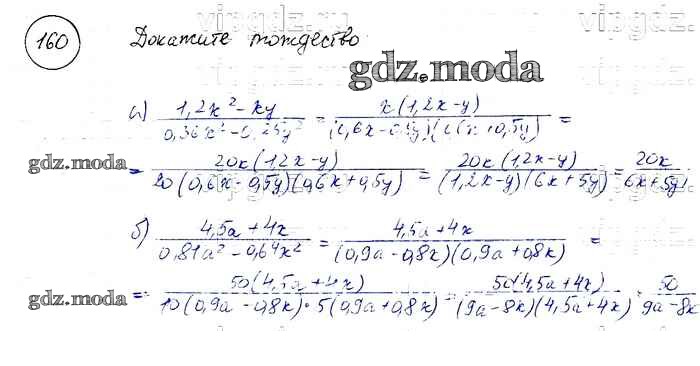 160 Докажите тождество
gdz.moda
а) (1,2x² - xy)/(0,36x² - 0,25y²) = x(1,2x-y)/((0,6x-0,5y)(0,6x+0,5y)) =
gdz.moda = 20x(1,2x-y)/(20(0,6x-0,5y)(0,6x+0,5y)) = 20x(1,2x-y)/((1,2x-y)(6x+5y)) = 20x/(6x+5y);
б) (4,5a+4x)/(0,81a² - 0,64x²) = (4,5a+4x)/((0,9a-0,8x)(0,9a+0,8x)) =
gdz.moda = 50(4,5a+4x)/(10(0,9a-0,8x)·5(0,9a+0,8x)) = 50(4,5a+4x)/((9a-8x)(4,5a+4x)) = 50/(9a-8x)